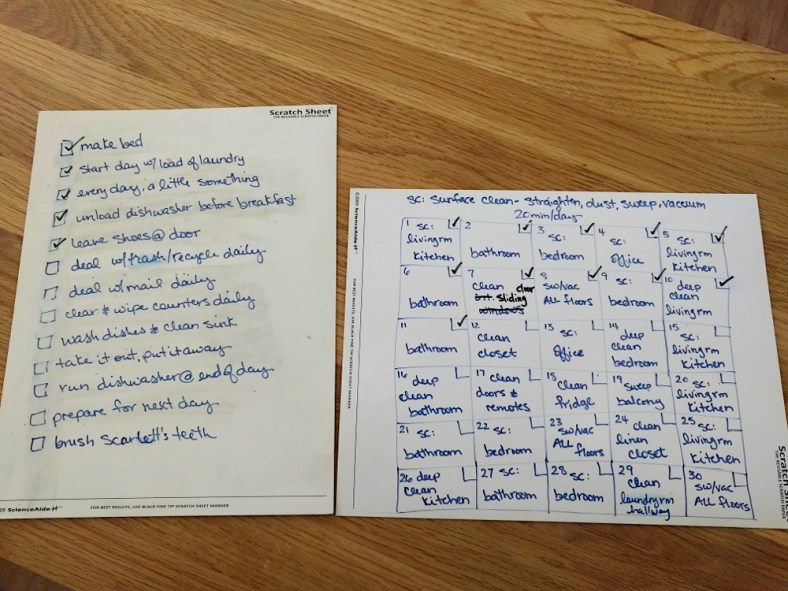 Scratch Sheet
THE REUSABLE SCRATCH PAPER
make bed
start day w/ load of laundry
every day, a little something
unload dishwasher before breakfast
leave shoes @ door
deal w/ trash/recycle daily
deal w/ mail daily
clear & wipe counters daily
wash dishes & clean sink
take it out, put it away
run dishwasher @ end of day
prepare for next day
brush Scarlett's teeth
ScienceAide
FOR BEST RESULTS, USE BLACK FINE TIP SCRATCH SHEET MARKER
SC: surface clean - straighten, dust, sweep, vacuum
20 min/day
1 SC:
livingrm
kitchen
2
bathroom
3 SC:
bedroom
4
SC:
office
5
SC:
livingrm
kitchen
6
bathroom
7
clean door
sliding
8
SW/VAC
ALL floors
9 SC:
bedroom
10 deep
clean
livingrm
11
bathroom
12
clean
closet
13
SC:
office
14
deep
clean
bedroom
15
SC:
livingrm
kitchen
16 deep
clean
bathroom
17 clean
doors &
remotes
18 clean
fridge
19 sweep
balcony
20 SC:
livingrm
kitchen
21 SC:
bathroom
22 SC:
bedroom
23
SW/VAC
ALL floors
24 clean
linen
closet
25 SC:
livingrm
kitchen
26 deep
clean
kitchen
27 SC:
bathroom
28 SC:
bedroom
29
clean
laundryrm
hallway
30
SW/VAC
ALL floors
ScienceAide
FOR BEST RESULTS, USE BLACK FINE TIP SCRATCH SHEET MARKER
Scratch